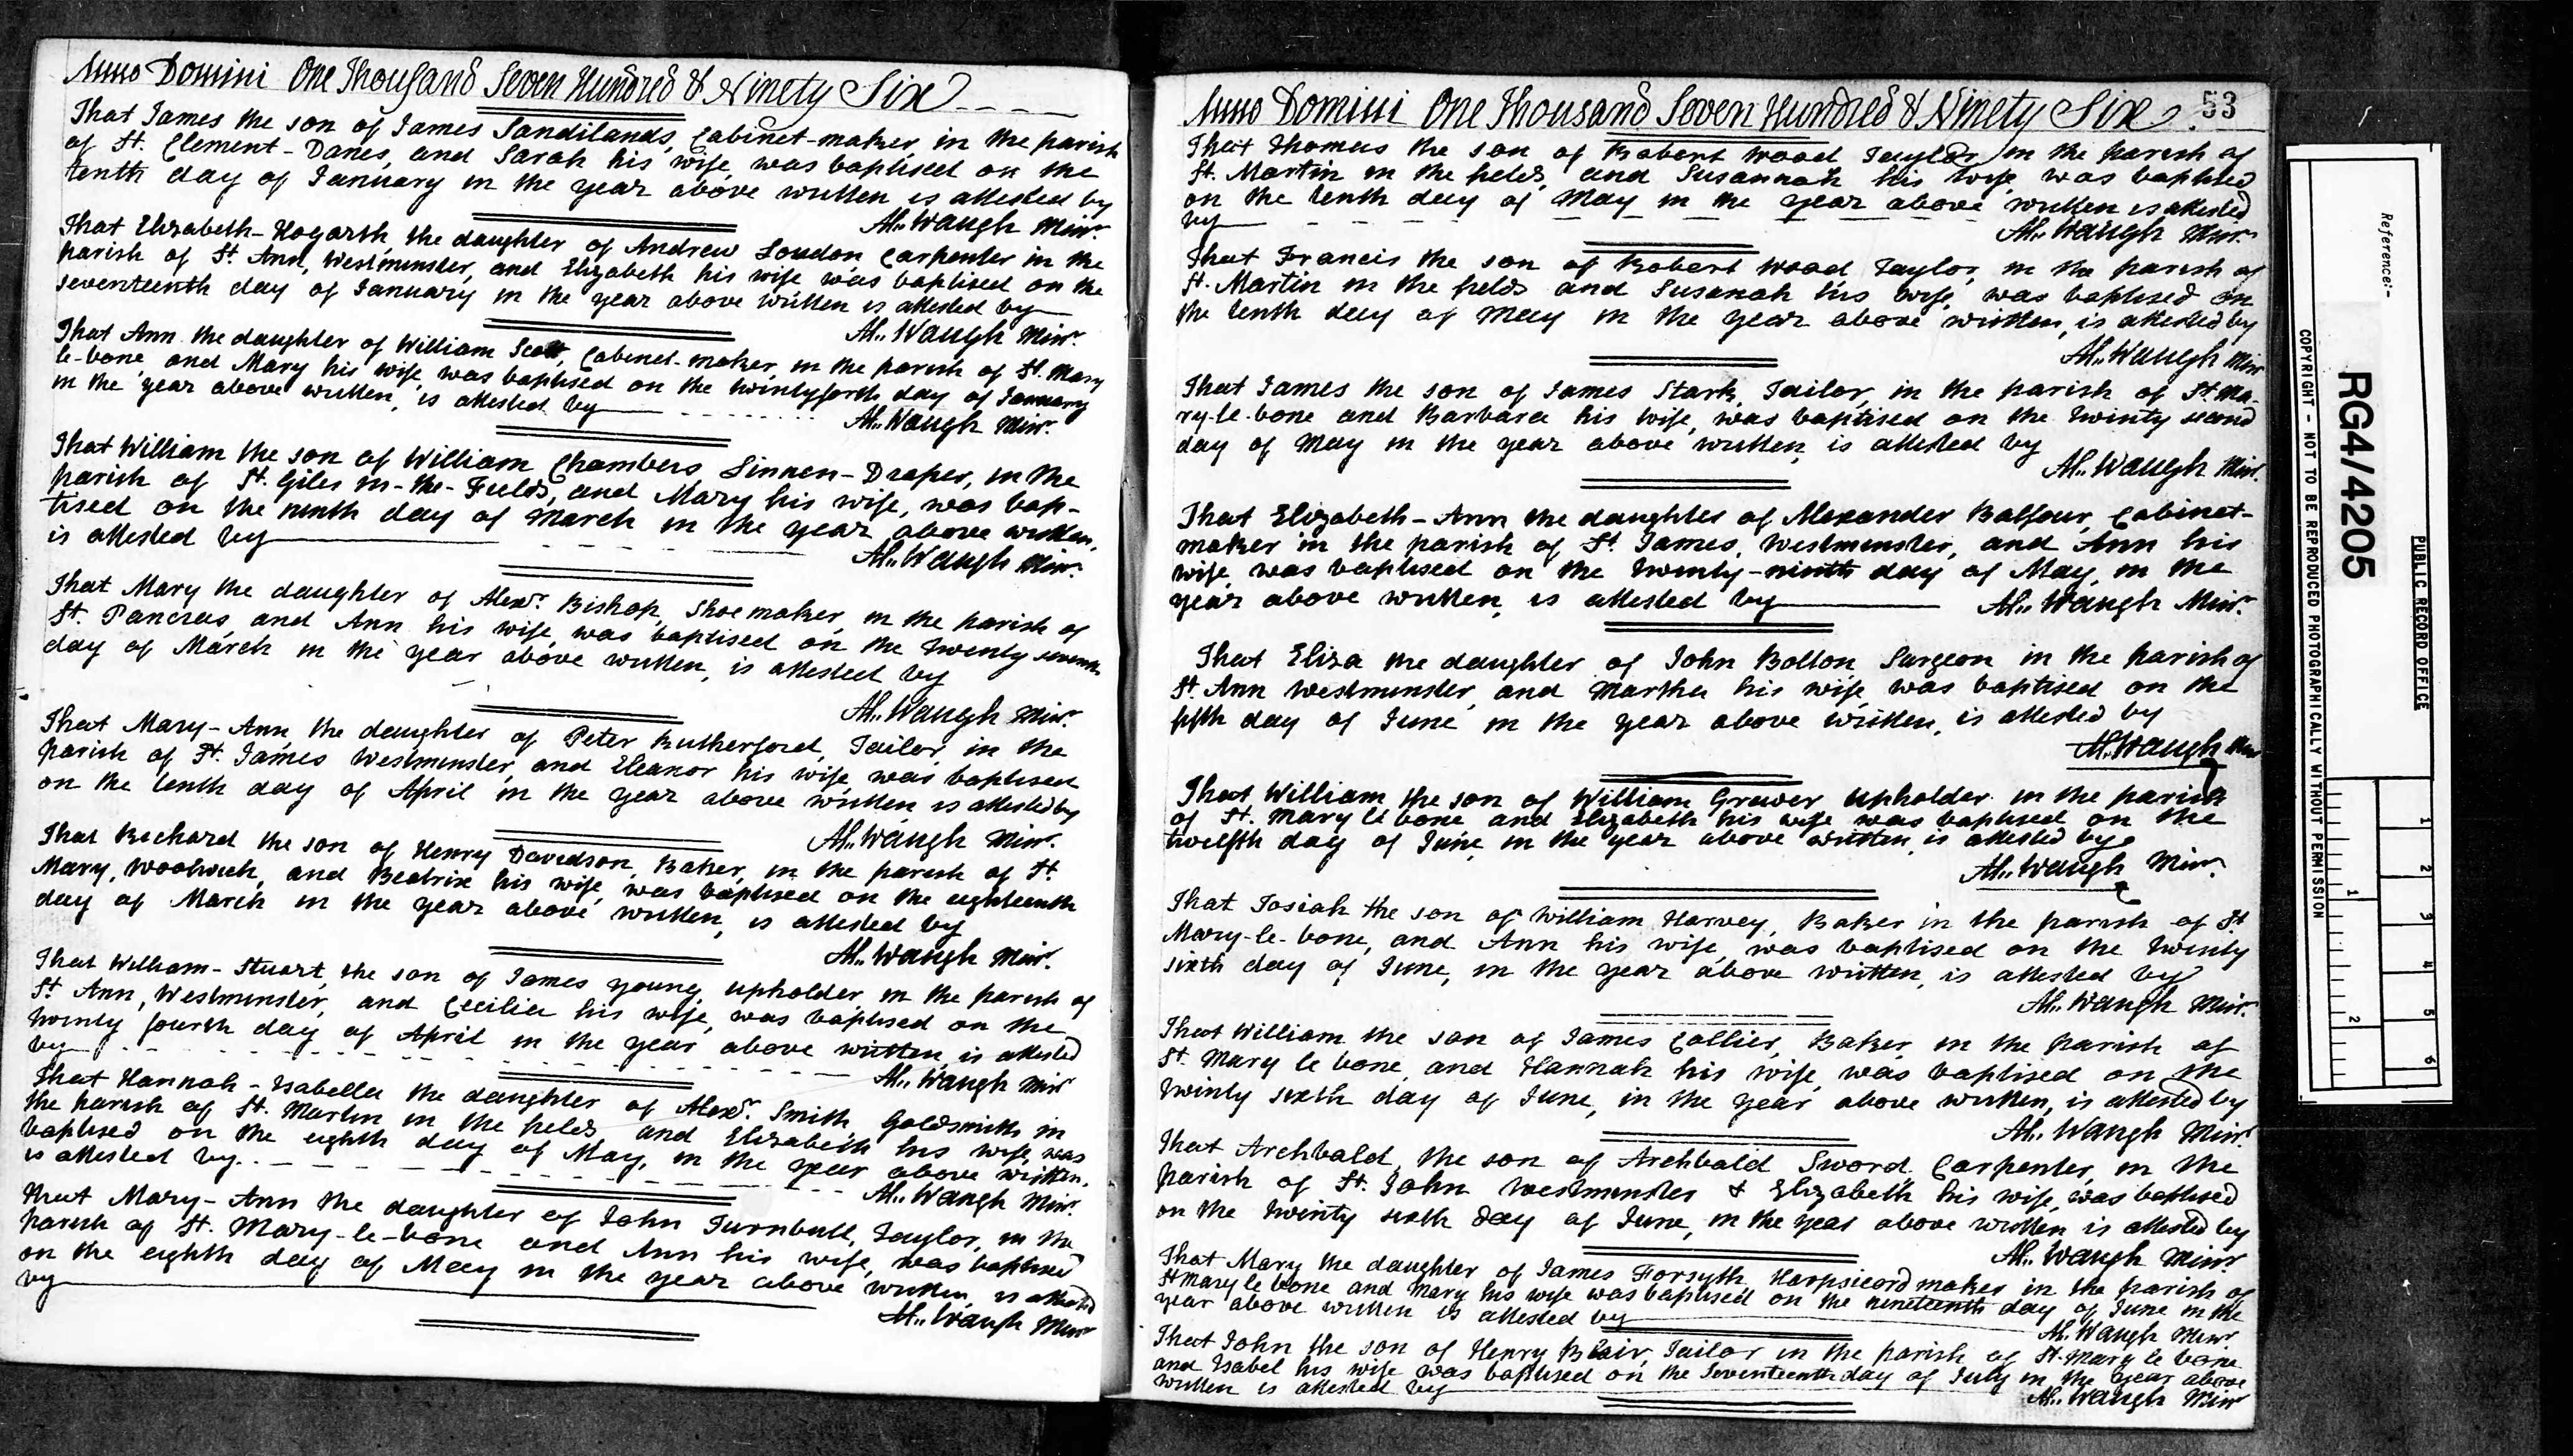 Anno Domini One Thousand Seven Hundred & Ninety Six
That James the son of James Sandilands, Cabinet-maker, in the parish
of St. Clement-Danes, and Sarah his wife, was baptised on the
tenth day of January in the year above written is attested by
Al.. Waugh Minr.
That Elizabeth-Hogarth, the daughter of Andrew Loudon Carpenter in the
parish of St. Ann, Westminster, and Elizabeth his wife was baptised on the
seventeenth day of January in the year above written is attested by
Al.. Waugh Minr.
That Ann the daughter of William Scott, Cabinet-maker, in the parish of St. Mary
le-bone, and Mary his wife, was baptised on the twintyforth day of January
in the year above written, is attested by
Al.. Waugh Minr.
That William the son of William Chambers, Linnen-Draper, in the
parish of St. Giles in-the-Fields, and Mary his wife, was bap-
tised on the ninth day of March in the year above written,
is attested by
Al.. Waugh Minr.
That Mary the daughter of Alexr. Bishop, Shoemaker, in the parish of
St. Pancras, and Ann his wife, was baptised on the twenty seventh
day of March in the year above written, is attested by
Al.. Waugh Minr.
That Mary-Ann the daughter of Peter Rutherford, Tailor, in the
parish of St. James Westminster, and Eleanor his wife, was baptised
on the tenth day of April in the year above written is attested by
Al.. Waugh Minr.
That Richard the son of Henry Davidson, Baker, in the parish of St.
Mary, Woolwich, and Beatrix his wife, was baptised on the eighteenth
day of March in the year above written, is attested by
Al.. Waugh Minr.
That William-Stuart, the son of James Young, upholder, in the parish of
St. Ann, Westminster, and Cecilia his wife, was baptised on the
twinty fourth day of April in the year above written is attested
by
Al.. Waugh Minr
That Hannah-Isabella the daughter of Alexr. Smith, Goldsmith, in
the parish of St. Martin in the fields and Elizabeth his wife, was
baptised on the eighth day of May, in the year above written,
is attested by
Al.. Waugh Minr.
That Mary-Ann the daughter of John Turnbull, Taylor, in the
parish of St. Mary-le-bone and Ann his wife, was baptised
on the eighth day of May in the year above written is attested
by
Al.. Waugh Minr
Anno Domini One Thousand Seven Hundred & Ninety Six
53
That Thomas the son of Robert Wood Taylor, in the parish of
St. Martin in the fields, and Susannah his wife, was baptised
on the tenth day of May in the year above written is attested
by
Al.. Waugh Minr.
That Francis the son of Robert Wood Taylor, in the parish of
St. Martin in the fields and Susanah his wife, was baptised on
the tenth day of May in the year above written, is attested by
Al.. Waugh Minr
That James the son of James Stark, Tailor, in the parish of St. Ma-
ry-le-bone and Barbara his wife, was baptised on the twinty second
day of May in the year above written, is attested by
Al.. Waugh Minr.
That Elizabeth-Ann the daughter of Alexander Balfour, Cabinet-
maker in the parish of St. James, Westminster, and Ann his
wife, was baptised on the twenty-ninth day of May, in the
year above written, is attested by
Al.. Waugh Minr.
That Eliza the daughter of John Bolton Surgeon in the parish of
St. Ann Westminster, and Martha his wife, was baptised on the
fifth day of June in the year above written, is attested by
Al. Waugh Minr
That William the son of William Gruver upholder in the parish
of St. Mary le bone and Elizabeth his wife was baptised on the
twelfth day of June, in the year above written, is attested by
Al.. Waugh Minr.
That Josiah the son of William Harvey, Baker in the parish of St
Mary-le-bone, and Ann his wife, was baptised on the twinty
sixth day of June, in the year above written, is attested by
Al.. Waugh Minr.
That William the son of James Collier, Baker, in the parish of
St. Mary le bone, and Hannah his wife, was baptised on the
twinty sixth day of June, in the year above written, is attested by
Al.. Waugh Minr
That Archbald, the son of Archbald Sword, Carpenter, in the
parish of St. John Westminster & Elizabeth his wife, was baptised
on the twinty sixth day of June, in the year above written is attested by
Al.. Waugh Minr
That Mary the daughter of James Forsyth, Harpsicord maker in the parish of
St Mary le bone and Mary his wife was baptised on the nineteenth day of June in the
year above written is attested by
Al. Waugh Minr.
That John the son of Henry Blair, Tailor in the parish of St. Mary le bone
and Isabel his wife was baptised on the Seventeenth day of July in the year above
written is attested by
Al.. Waugh Minr
Reference:-
RG4/4205
PUBLIC RECORD OFFICE
COPYRIGHT - NOT TO BE REPRODUCED PHOTOGRAPHICALLY WITHOUT PERMISSION
1
2
3
4
5
6
1
2